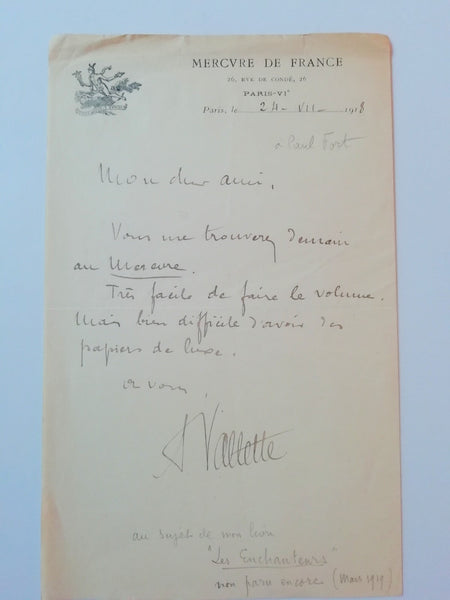 MERCVRE DE FRANCE
26, RVE DE CONDÉ, 26
PARIS-VIᵉ
Paris, le 24 - VII - 1918
à Paul Fort
Mon cher ami,
Vous me trouverez demain
au Mercure.
Très facile de faire le volume.
Mais bien difficile d'avoir des
papiers de luxe.
A vous,
A Vallette
au sujet de mon
"Les Enchanteurs"
non paru encore (Mars 1919)